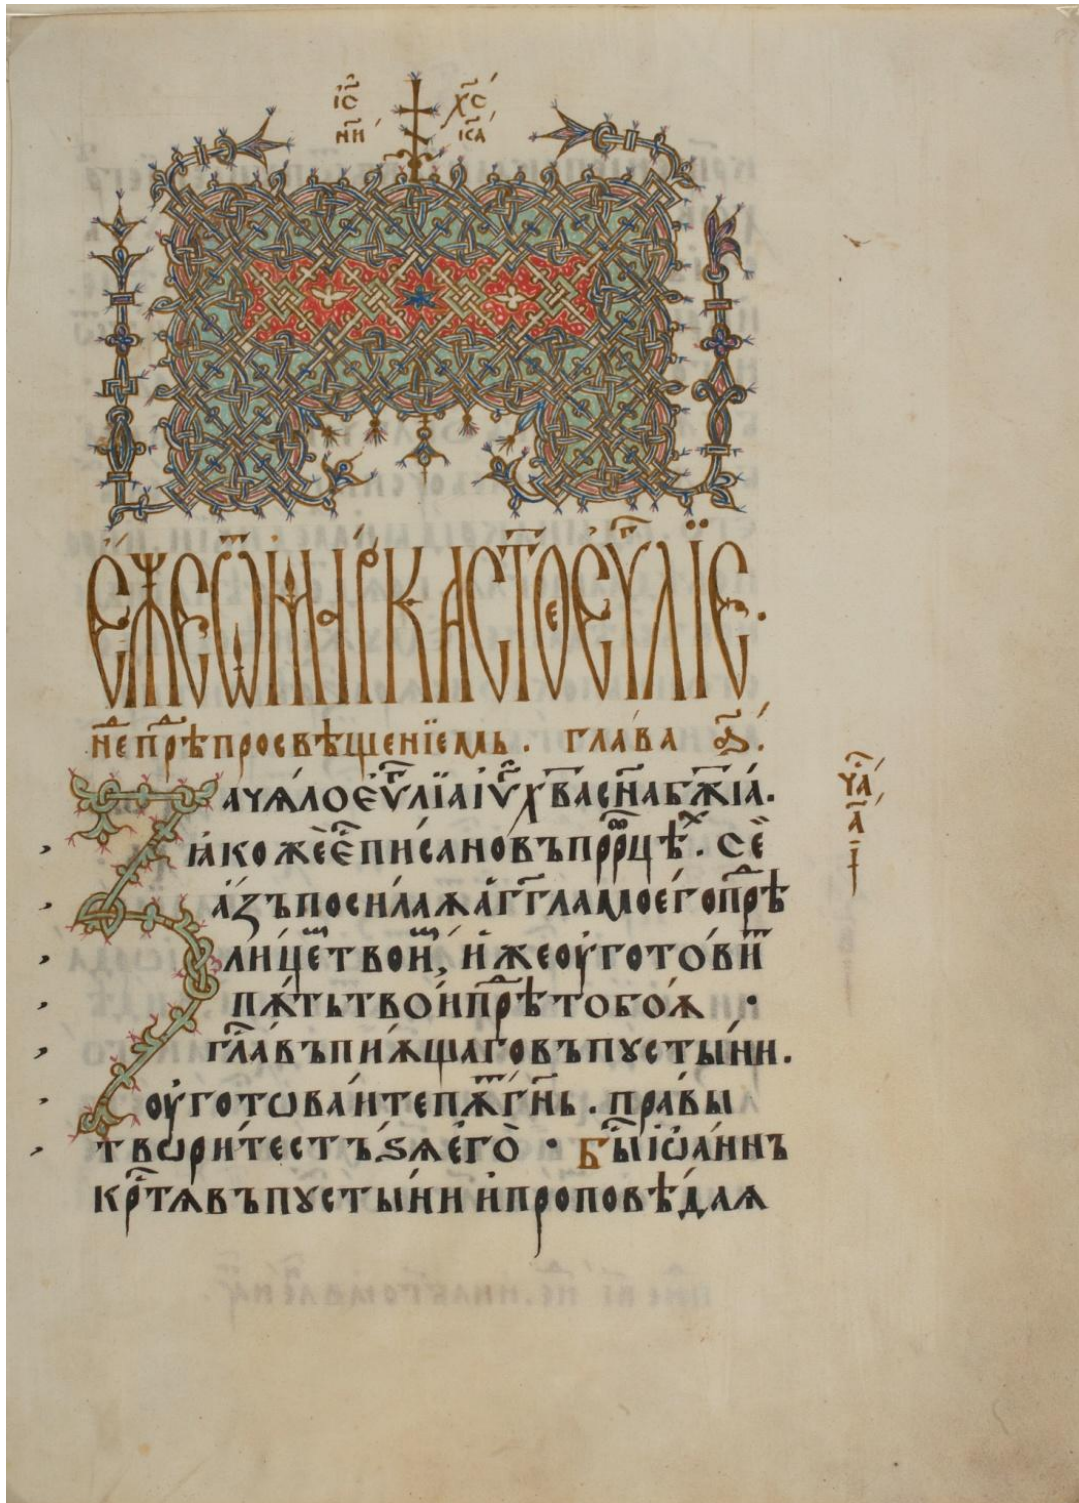 і҃с х҃с
ни҃ ка҃
є́же ѿ ма́рка ст҃ое є҆ѵⷢ҇лїе.
неⷣ прⷣѣ просвѣщенїемь. глава а҃.
Зачѧло є҆ѵⷢ҇лїа і҆ѵ҃ х҃ва сн҃а бж҃їа.
ꙗкоже є҆с̑ писано въ пррⷪ҇цѣⷯ. се
а҆зъ посилаѫ а҆гг҃ла моего прⷣѣ
лицеⷨ твоиⷨ, и҆же оуготовиⷮ
пѫть твои прⷣѣ тобоѫ ·
гла҃ въпиѫщаго въ пꙋстыни.
оуготѡваите пѫⷮ гн҃ь. правы
творите стъѕѧ его · Быⷭ҇ іѡаннъ
крⷭ҇тѧ въ пꙋстыни и҆ проповѣдаѧ
ча҃
а҃